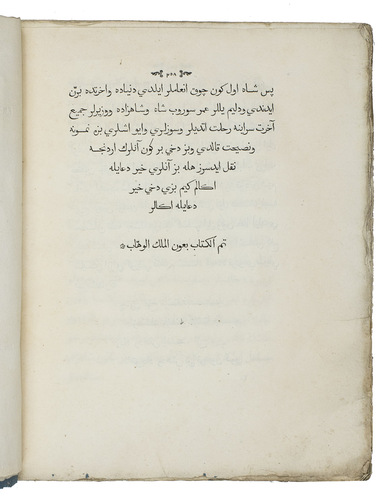 ٢٥٨
پس شاه اول كون چوق انعاملر ايلدي دنياده واخرتده بزي
ايتدي ودليم يللر عمر سوروب شاه وشاهزاده ووزيرلر جميع
آخرت سراينه رحلت اتديلر وسوزلري وايو اشلري بزه نمونه
ونصيحت قالدي وبز دخي بر كون آنلرك اردنجه
نقل ايدسرز هله بز آنلري خير دعايله
اكالم كيم بزي دخي خير
دعايله اكالر
تم الكتاب بعون الملك الوهاب